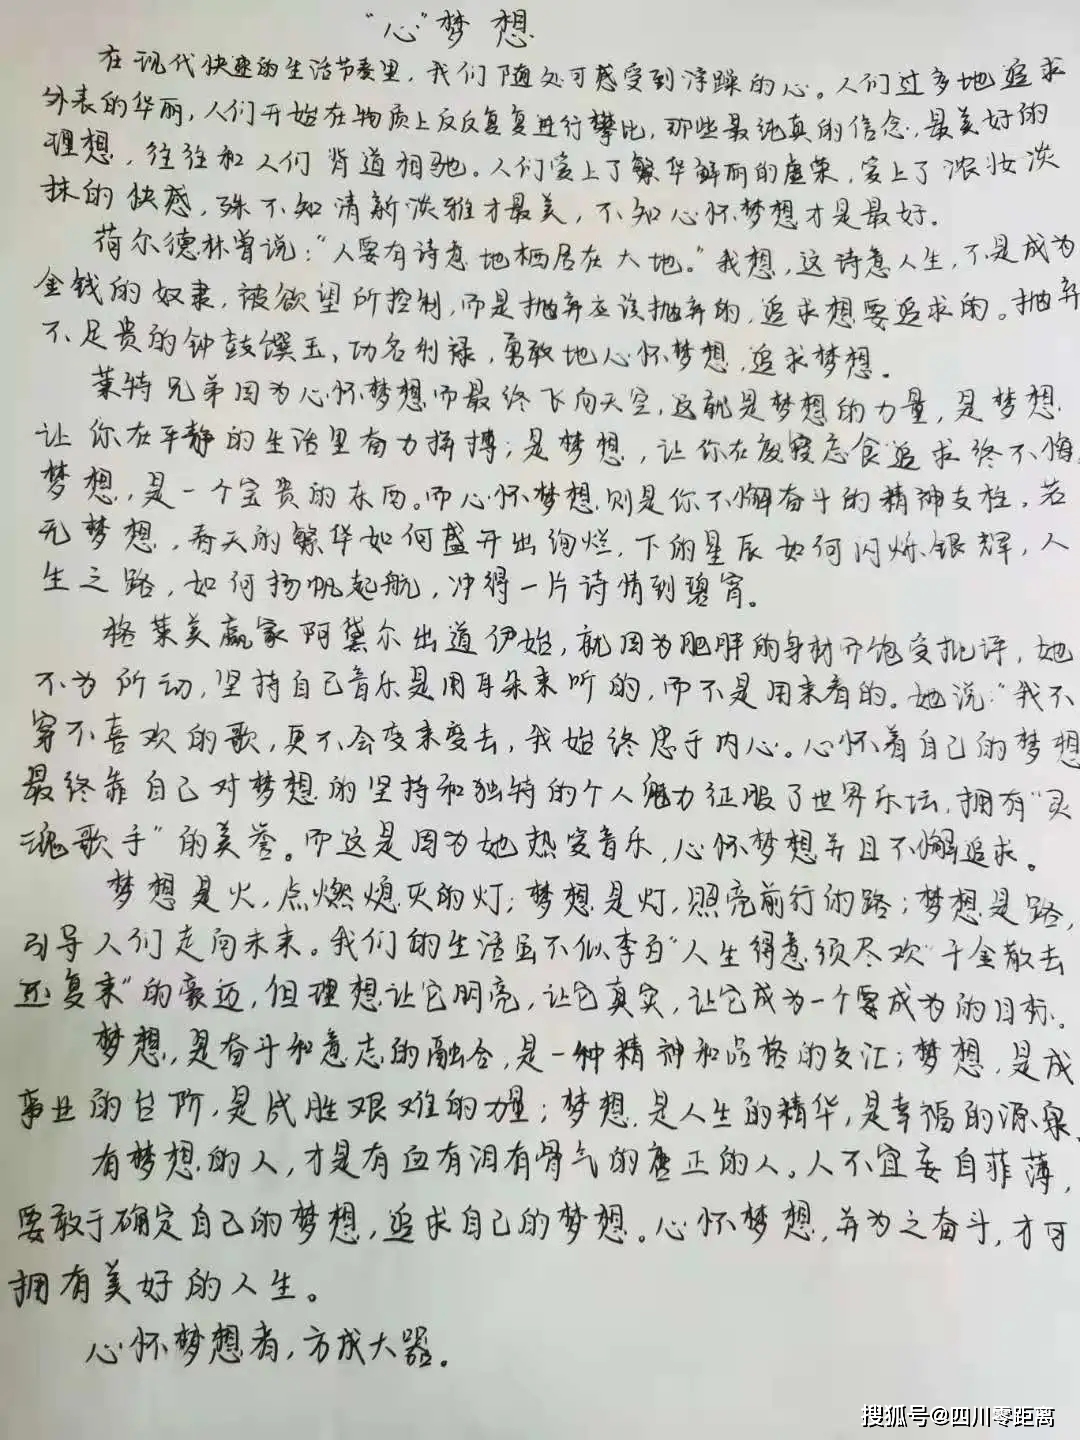 “心”梦想
在现代快速的生活节奏里，我们随处可感受到浮躁的心。人们过多地追求
外表的华丽，人们开始在物质上反反复复进行攀比，那些最纯真的信念、最美好的
理想，往往和人们背道相驰。人们爱上了繁华鲜丽的虚荣，爱上了浓妆淡
抹的快感，殊不知清新淡雅才最美，不知心怀梦想才是最好。
荷尔德林曾说：“人要有诗意地栖居在大地。”我想，这诗意人生，不是成为
金钱的奴隶，被欲望所控制，而是抛弃应该抛弃的，追求想要追求的。抛弃
不足贵的钟鼓馔玉、功名利禄，勇敢地心怀梦想，追求梦想。
莱特兄弟因为心怀梦想而最终飞向天空，这就是梦想的力量，是梦想
让你在平静的生活里奋力拼搏；是梦想，让你在废寝忘食追求终不悔
梦想，是一个宝贵的东西。而心怀梦想，则是你不懈奋斗的精神支柱，若
无梦想，春天的繁华如何盛开出绚烂，下的星辰如何闪烁银辉，人
生之路，如何扬帆起航，冲得一片诗情到碧宵。
格莱美赢家阿黛尔出道伊始，就因为肥胖的身材而饱受批评，她
不为所动，坚持自己音乐是用耳朵来听的，而不是用来看的。她说：“我不
穿不喜欢的歌，更不会变来变去，我始终忠于内心。心怀着自己的梦想
最终靠自己对梦想的坚持和独特的个人魅力征服了世界乐坛，拥有“灵
魂歌手”的美誉。而这是因为她热爱音乐，心怀梦想并且不懈追求。
梦想是火，点燃熄灭的灯；梦想是灯，照亮前行的路；梦想是路，
引导人们走向未来。我们的生活虽不似李白“人生得意须尽欢”千金散去
还复来”的豪迈，但理想让它明亮，让它真实，让它成为一个要成为的目标。
梦想，是奋斗和意志的融合，是一种精神和品格的交汇；梦想，是成
事业的台阶，是战胜艰难的力量；梦想，是人生的精华，是幸福的源泉
有梦想的人，才是有血有泪有骨气的真正的人。人不宜妄自菲薄，
要敢于确定自己的梦想，追求自己的梦想。心怀梦想，并为之奋斗，才可
拥有美好的人生。
心怀梦想者，方成大器。
搜狐号@四川零距离